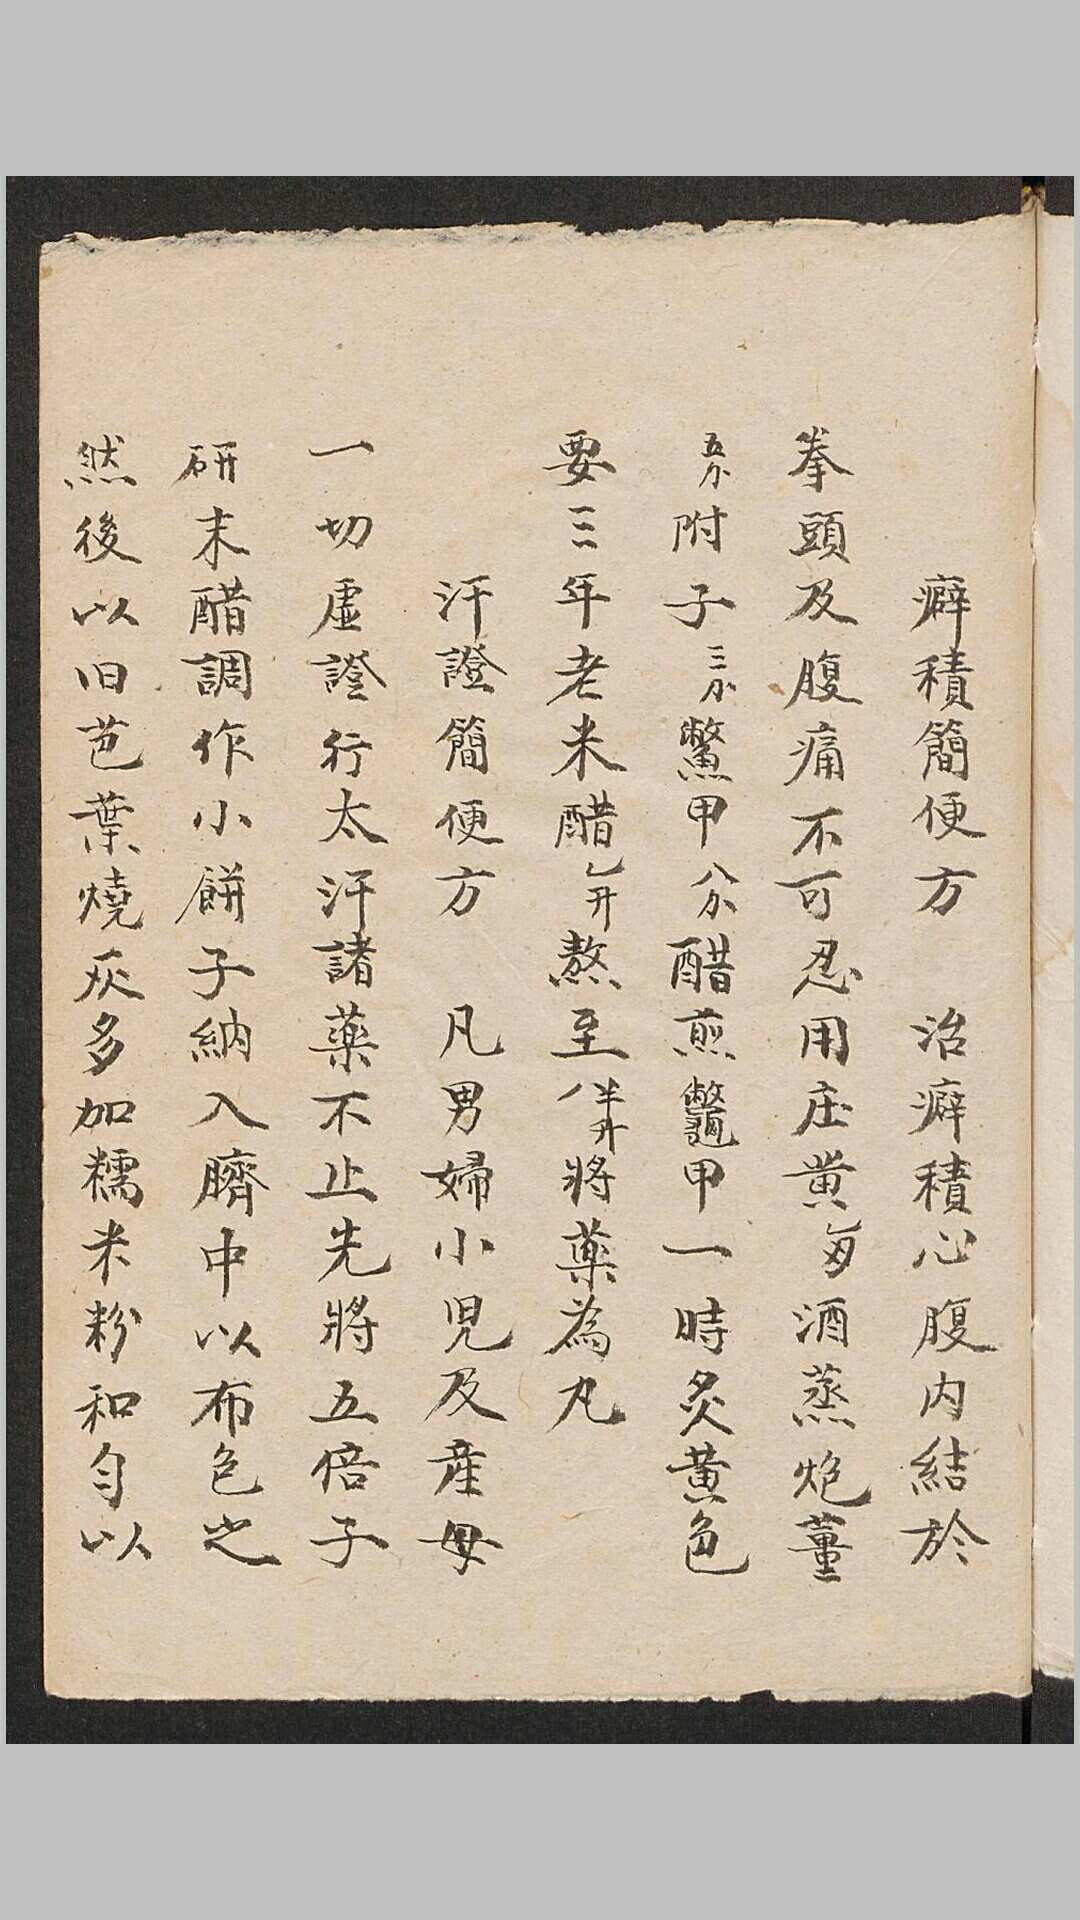 癖積簡便方　治癖積心腹内結於
拳頭及腹痛不可忍用庄黄匁酒蒸炮薑
五分附子三分鱉甲八分醋煎鼈甲一時炙黄色
要三年老米醋乚升熬至八半升將藥為丸
汗證簡便方　凡男婦小児及産母
一切虚證行太汗諸藥不止先將五倍子
研末醋調作小餅子納入臍中以布色之
然後以旧芭葉燒灰多加糯米粉和匀以